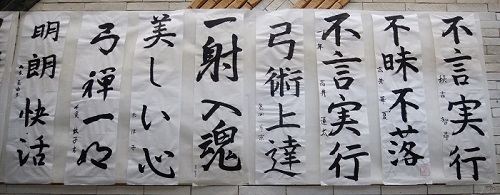 不言実行
不昧不落
不言実行
弓術上達
一射入魂
美しい心
弓禅一如
明朗快活